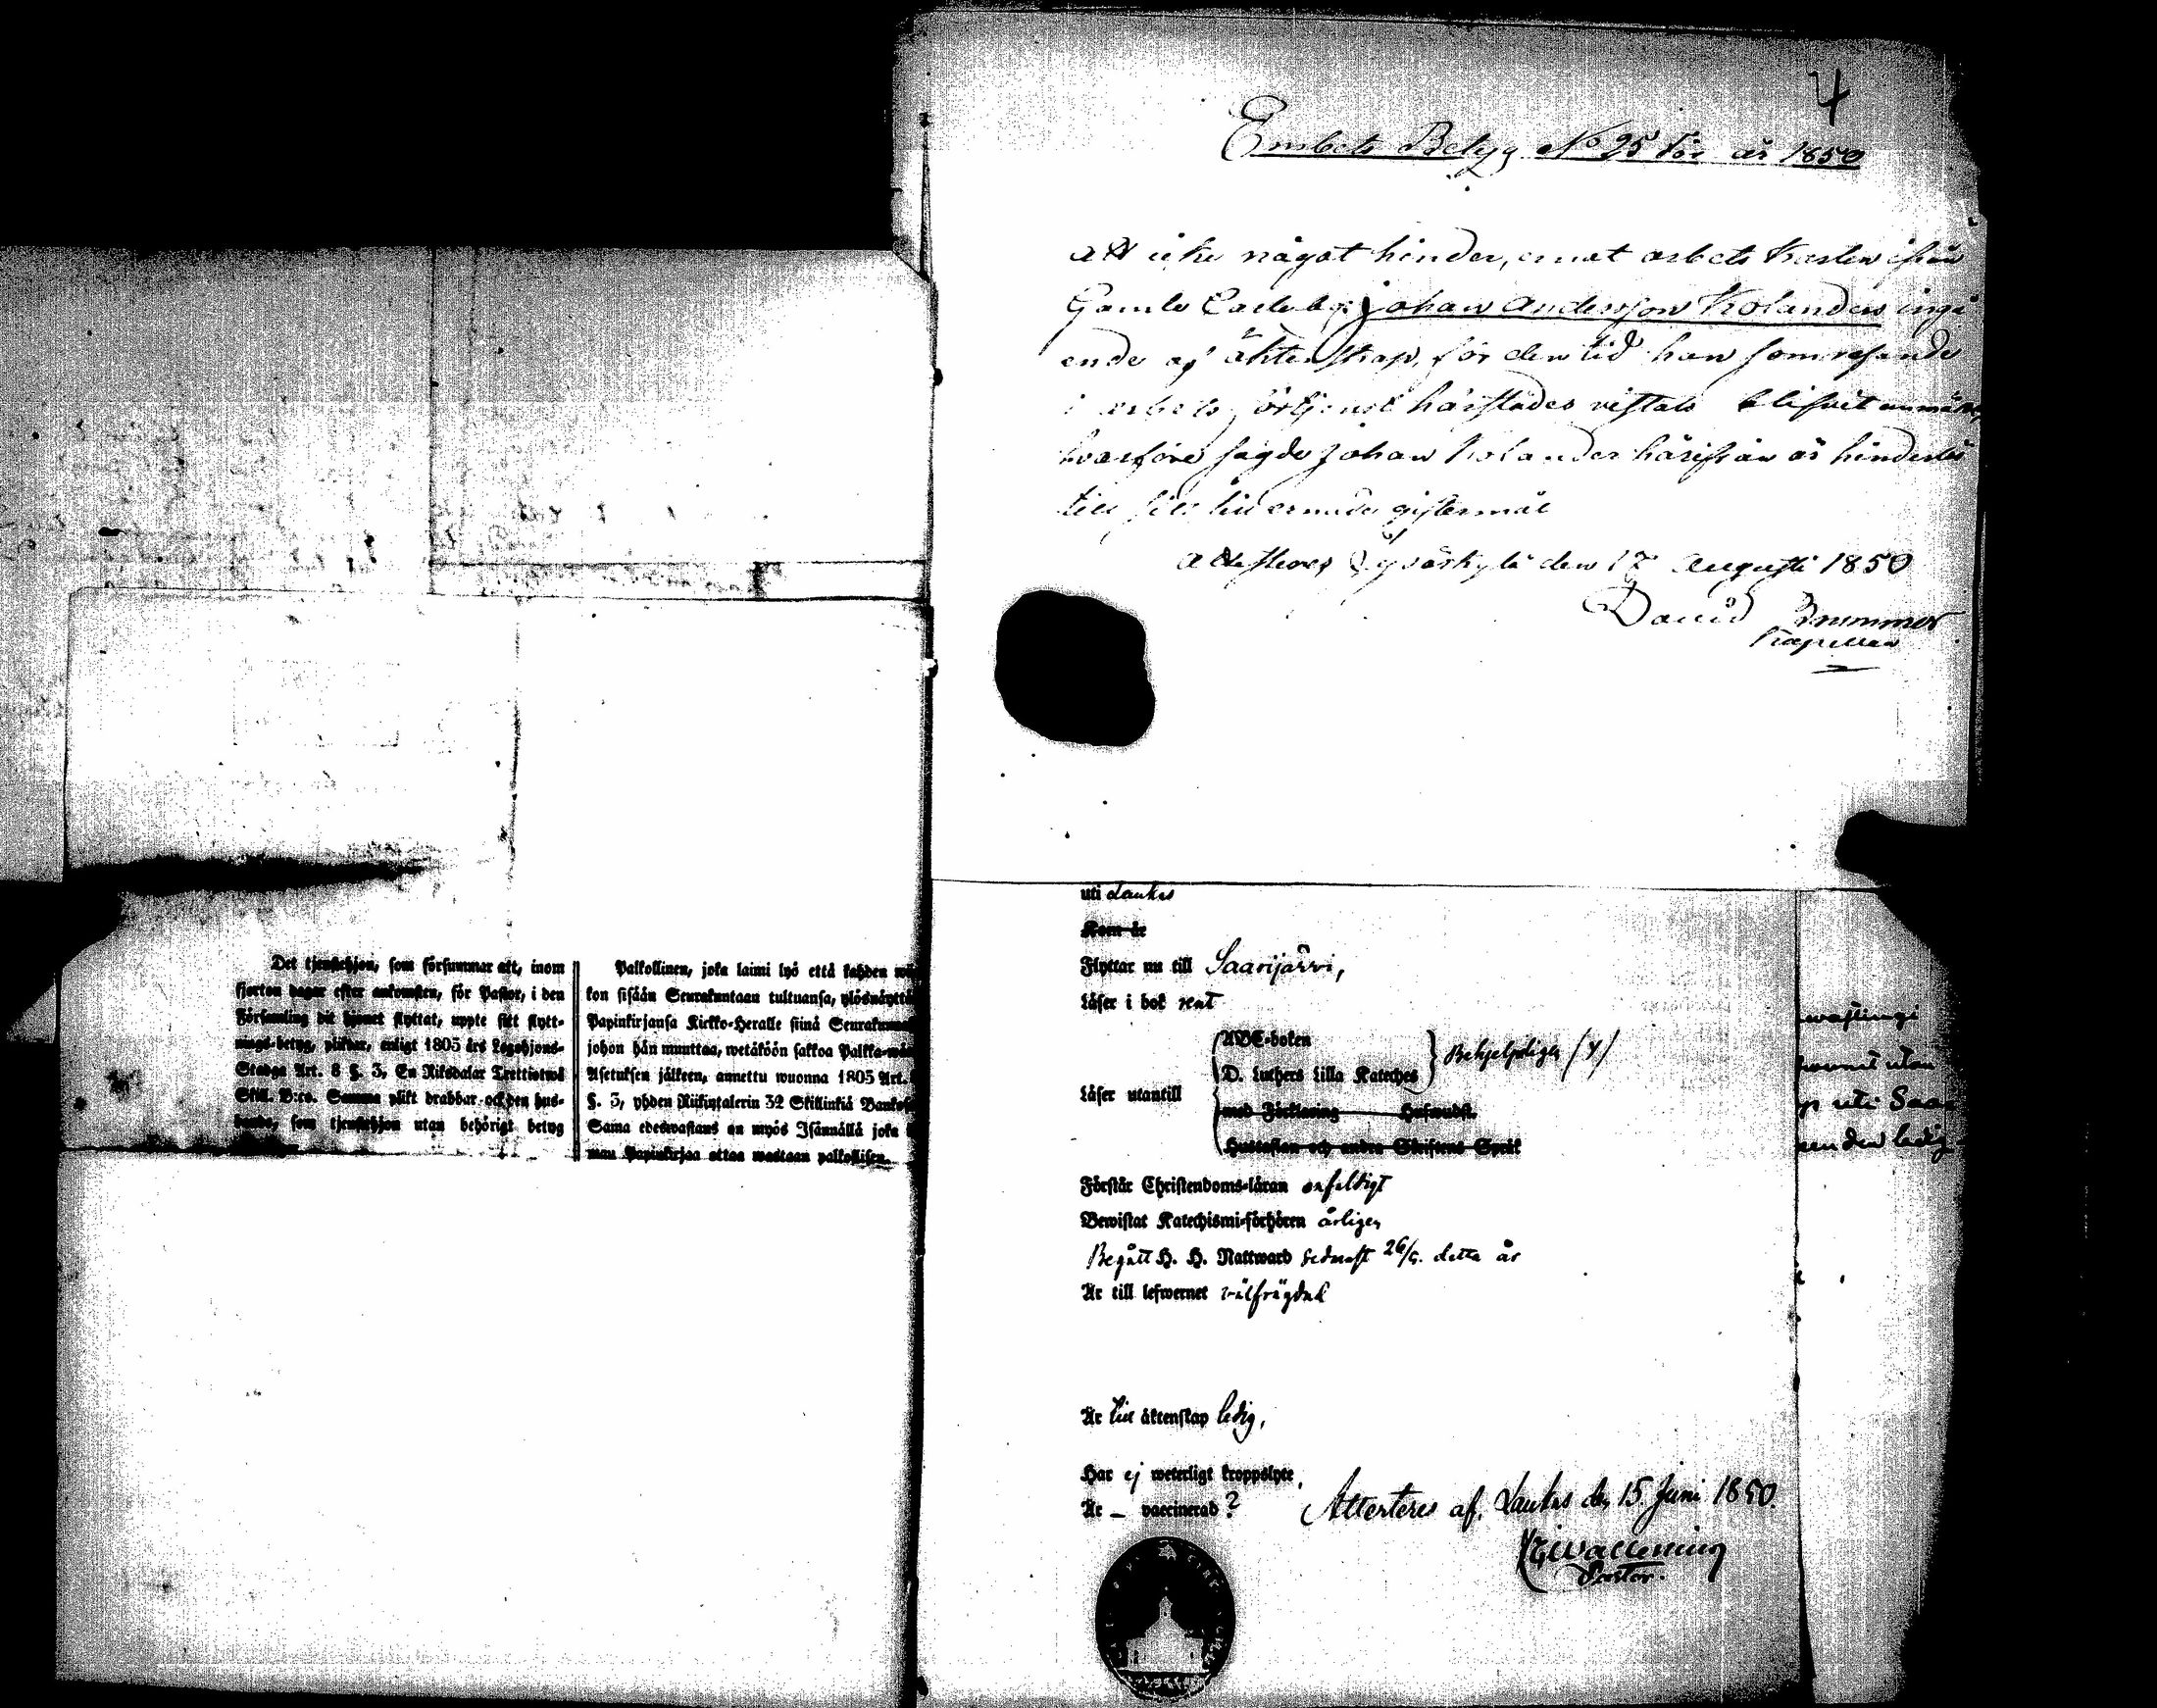 4
Embets Betyg No 25 för år 1850
att icke något hinder, emot arbets Karlen ifrån
Gamle Carleby Johan Andersson Kolander ingå
ende af äktenskap, för den tid han som resande
i arbets förtjenst härstädes vistats blifvit anmält,
hvarföre sagde Johan Kolander härifrån är hinderlös
till sitt tillernade giftermål
Attesteras den 17 Augusti 1850
David Brummer
Kapellan
Det tjenstehjon, som försummar att, inom
fjorton dagar efter ankomsten, för Pastor, i den
Församling dit hjonet flyttat, uppte sitt flytt-
nings-betyg, pliktar, enligt 1805 års Legohjons-
Stadga Art. 8 §. 3, En Riksdalar Trettiotwå
Skill. B:co. Samma plikt drabbar ock den hus-
bonde, som tjenstehjon utan behörigt betyg
Palkollinen, joka laimi lyö että kahden
kon sisään Seurakuntaan tultuansa, ylösnäyttä
Papinkirjansa Kirkko-Heralle siinä Seurakunnas
johon hän muuttaa, wetäköön sakkoa Palkka-
Asetuksen jälkeen, annettu wuonna 1805 Art.
§. 3, yhden Riikintalerin 32 Skillinkiä Banko
Sama edeswastaus on myös Isännällä joka
man Papinkirjaa ottaa wastaan palkollisen.
uti Laukas
Kom år
Flyttar nu till Saarijärvi,
Läser i bok rent
ABC-boken
D. Luthers Lilla Kateches
Läser utantill
Behjelpligen (4)
med Förklaring Hufwudst.
Hustaflan och andra Skriftens Språk
Förstår Christendoms-läran enfaldigt
Bewistat Katechismi-förhören årligen
Begått H. H. Nattward sednast 26/5. detta år
Är till lefwernet välfrägdad
Är till äktenskap ledig,
Har ej weterligt kroppslyte,
Är — vaccinerad?
Attesteres af. Laukas den 15 Juni 1850.
Pastor.
utan
uti Saa
den ledig